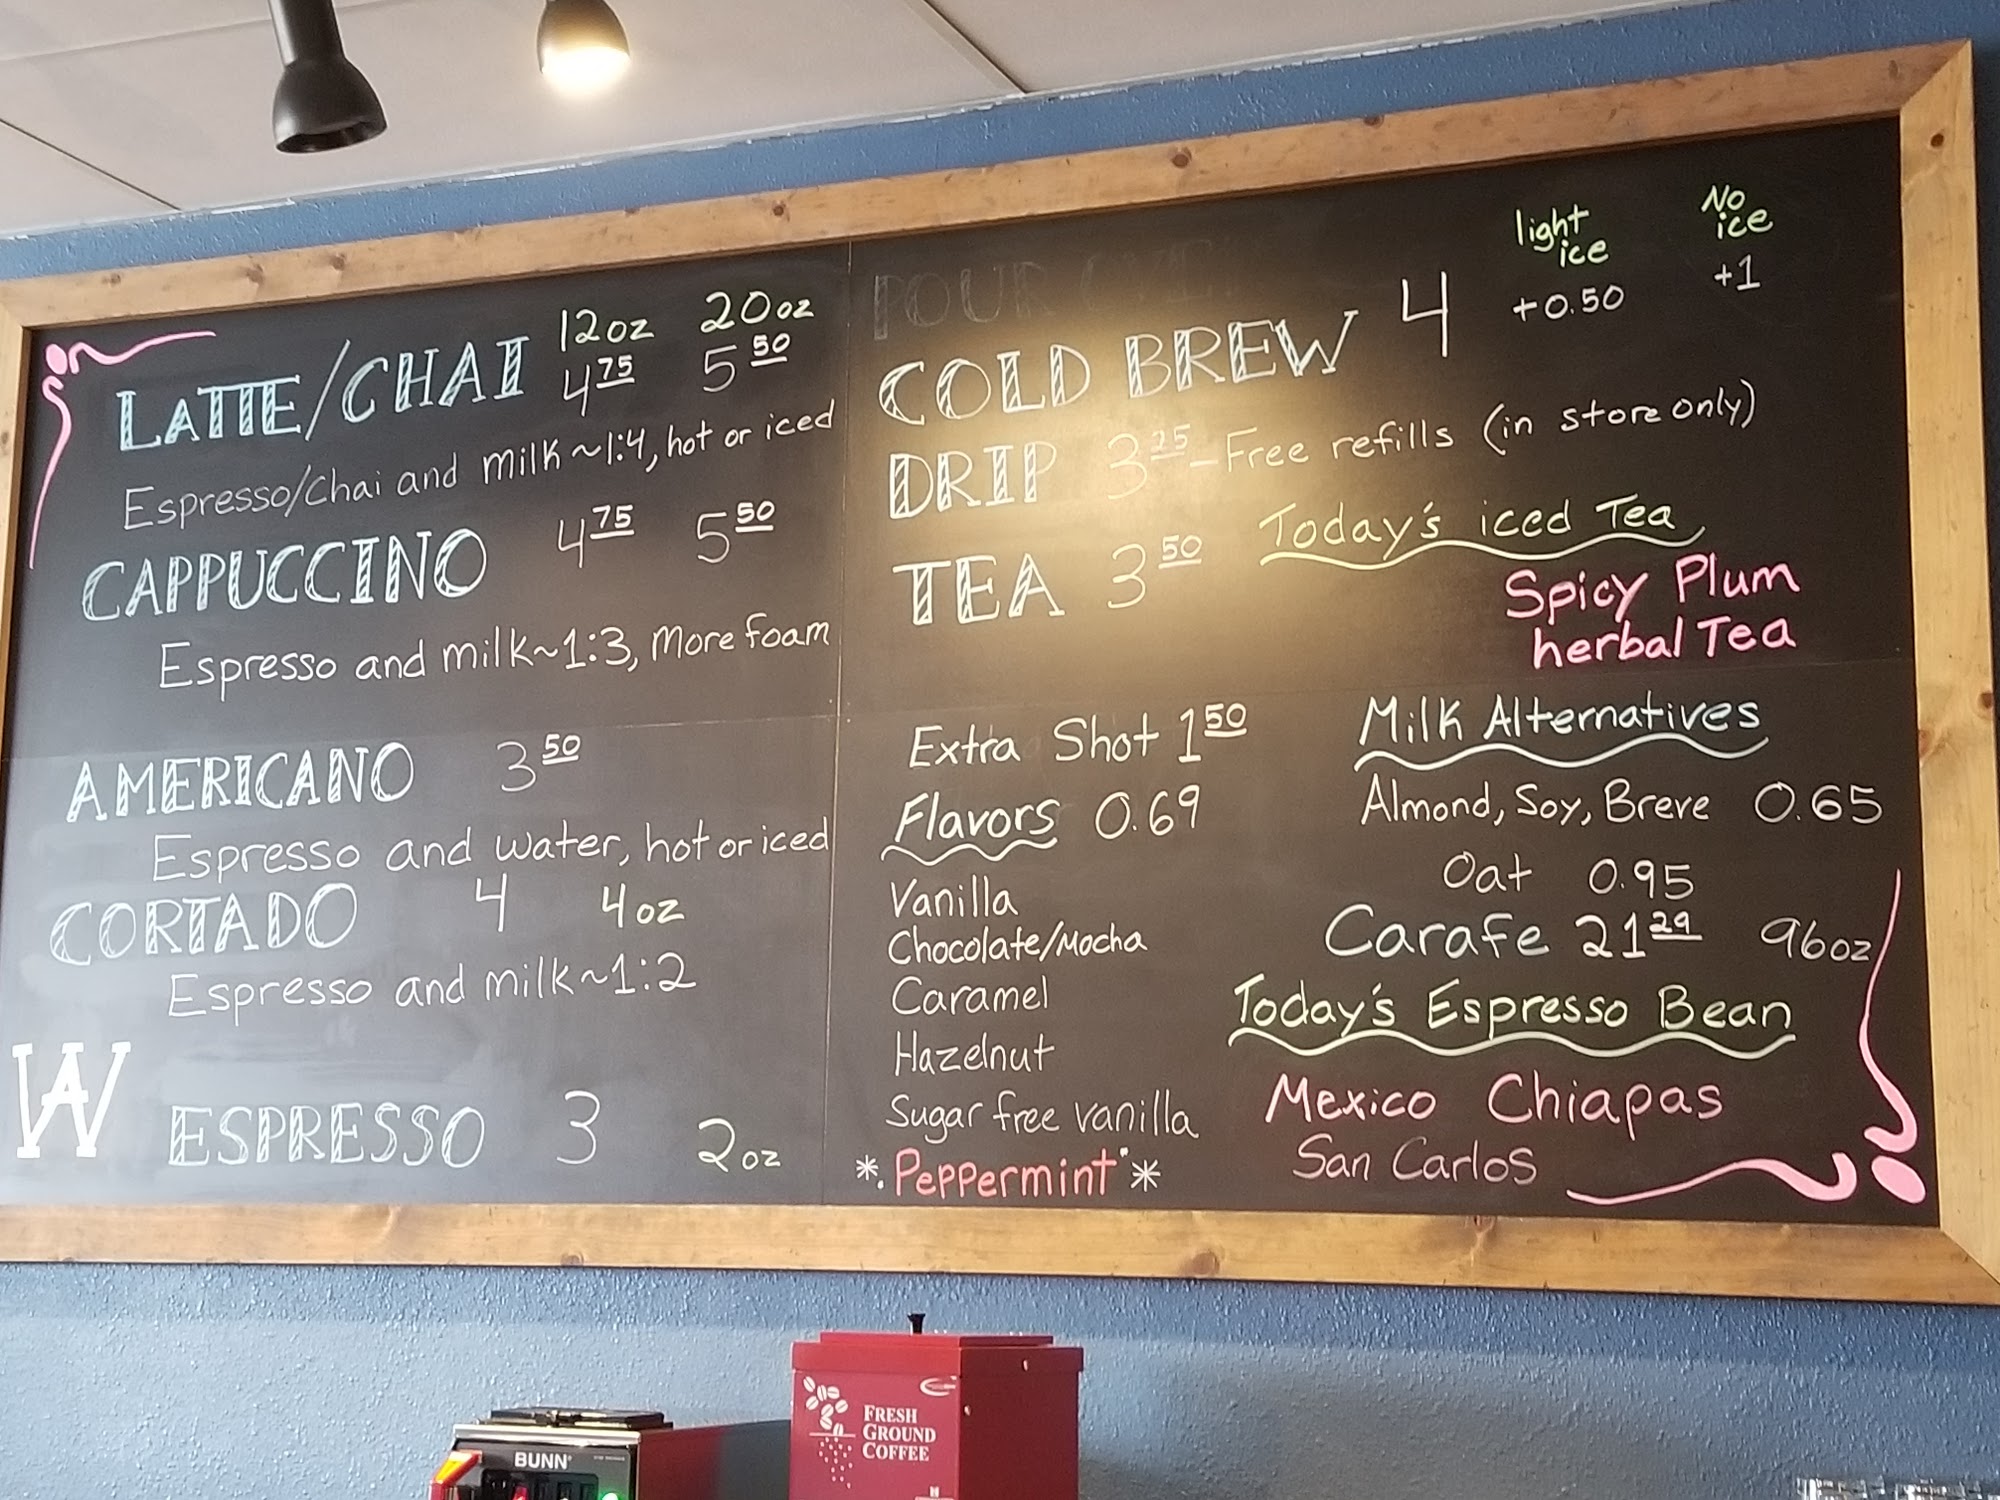 12oz 20oz
LATTE/CHAI 4 75 5 50
Espresso/chai and milk ~1:4, hot or iced
CAPPUCCINO 4 75 5 50
Espresso and milk ~1:3, More foam
AMERICANO 3 50
Espresso and water, hot or iced
CORTADO 4 4oz
Espresso and milk ~1:2
ESPRESSO 3 2oz
POUR
light ice No ice
COLD BREW 4 +0.50 +1
DRIP 3 25 - Free refills (in store only)
TEA 3 50 Today's iced Tea
Spicy Plum
herbal Tea
Extra Shot 1 50
Flavors 0.69
Vanilla
Chocolate/Mocha
Caramel
Hazelnut
Sugar free vanilla
*Peppermint*
Milk Alternatives
Almond, Soy, Breve 0.65
Oat 0.95
Carafe 21 29 96oz
Today's Espresso Bean
Mexico Chiapas
San Carlos
BUNN
FRESH
GROUND
COFFEE